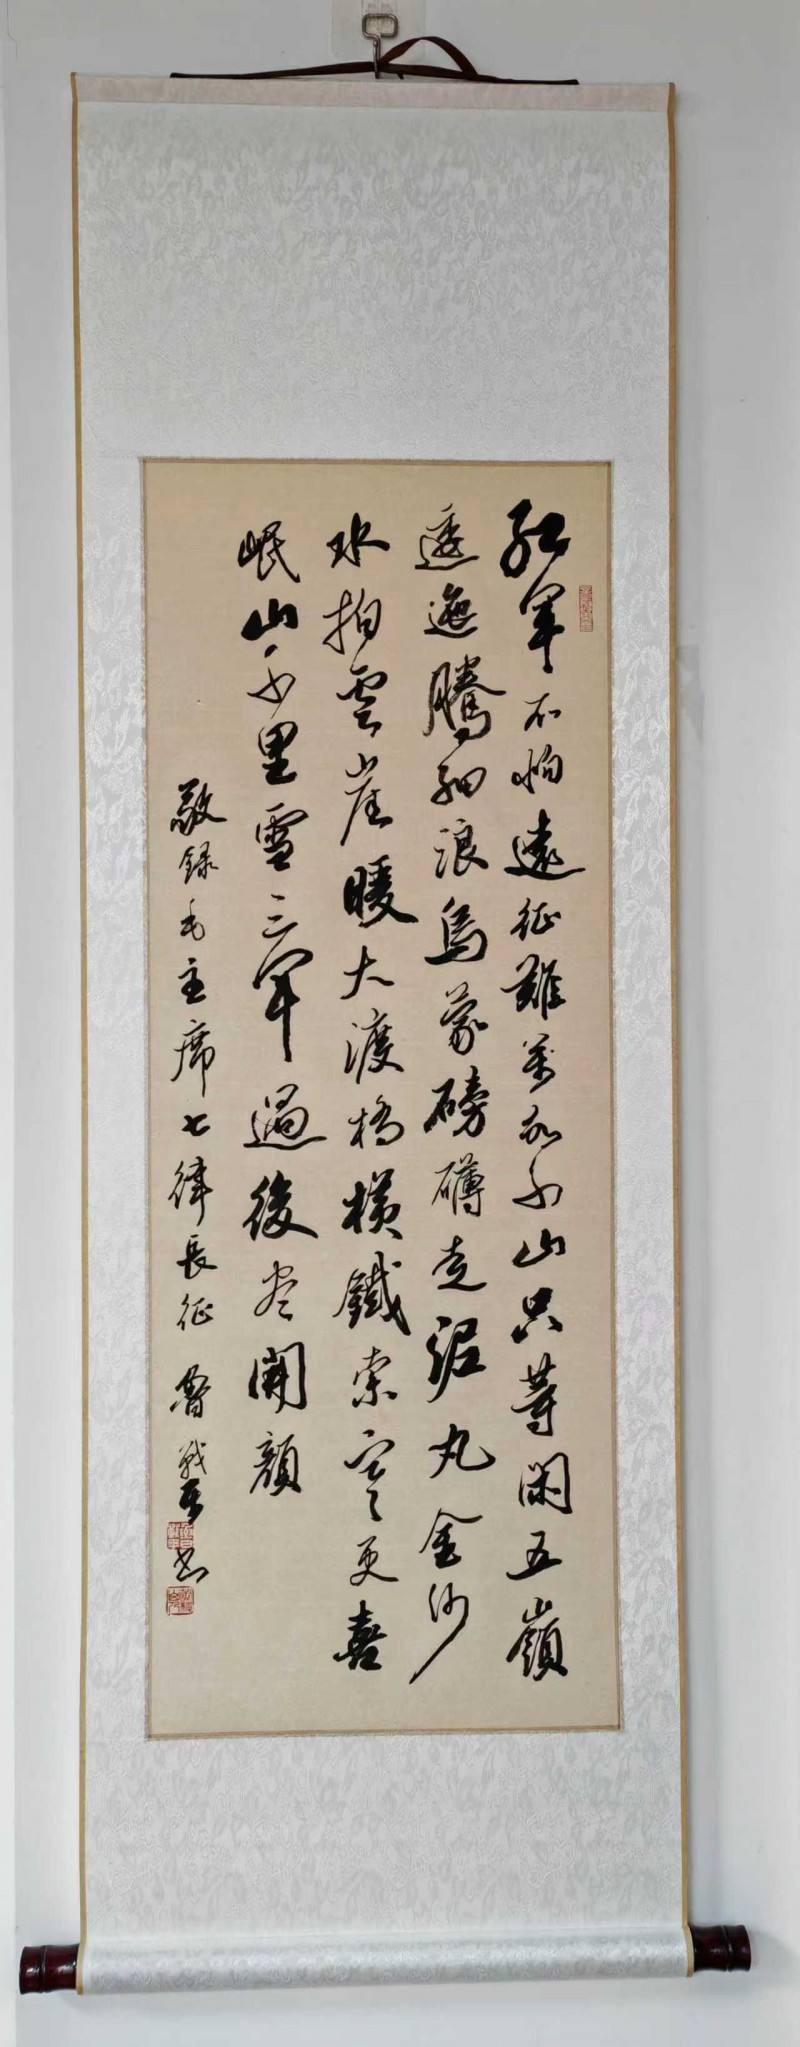 紅軍不怕遠征難萬水千山只等閑五嶺
逶迤騰細浪烏蒙磅礴走泥丸金沙
水拍雲崖暖大渡橋橫鐵索寒更喜
岷山千里雪三軍過後尽開顏
敬録毛主席七律長征 魯戰 書